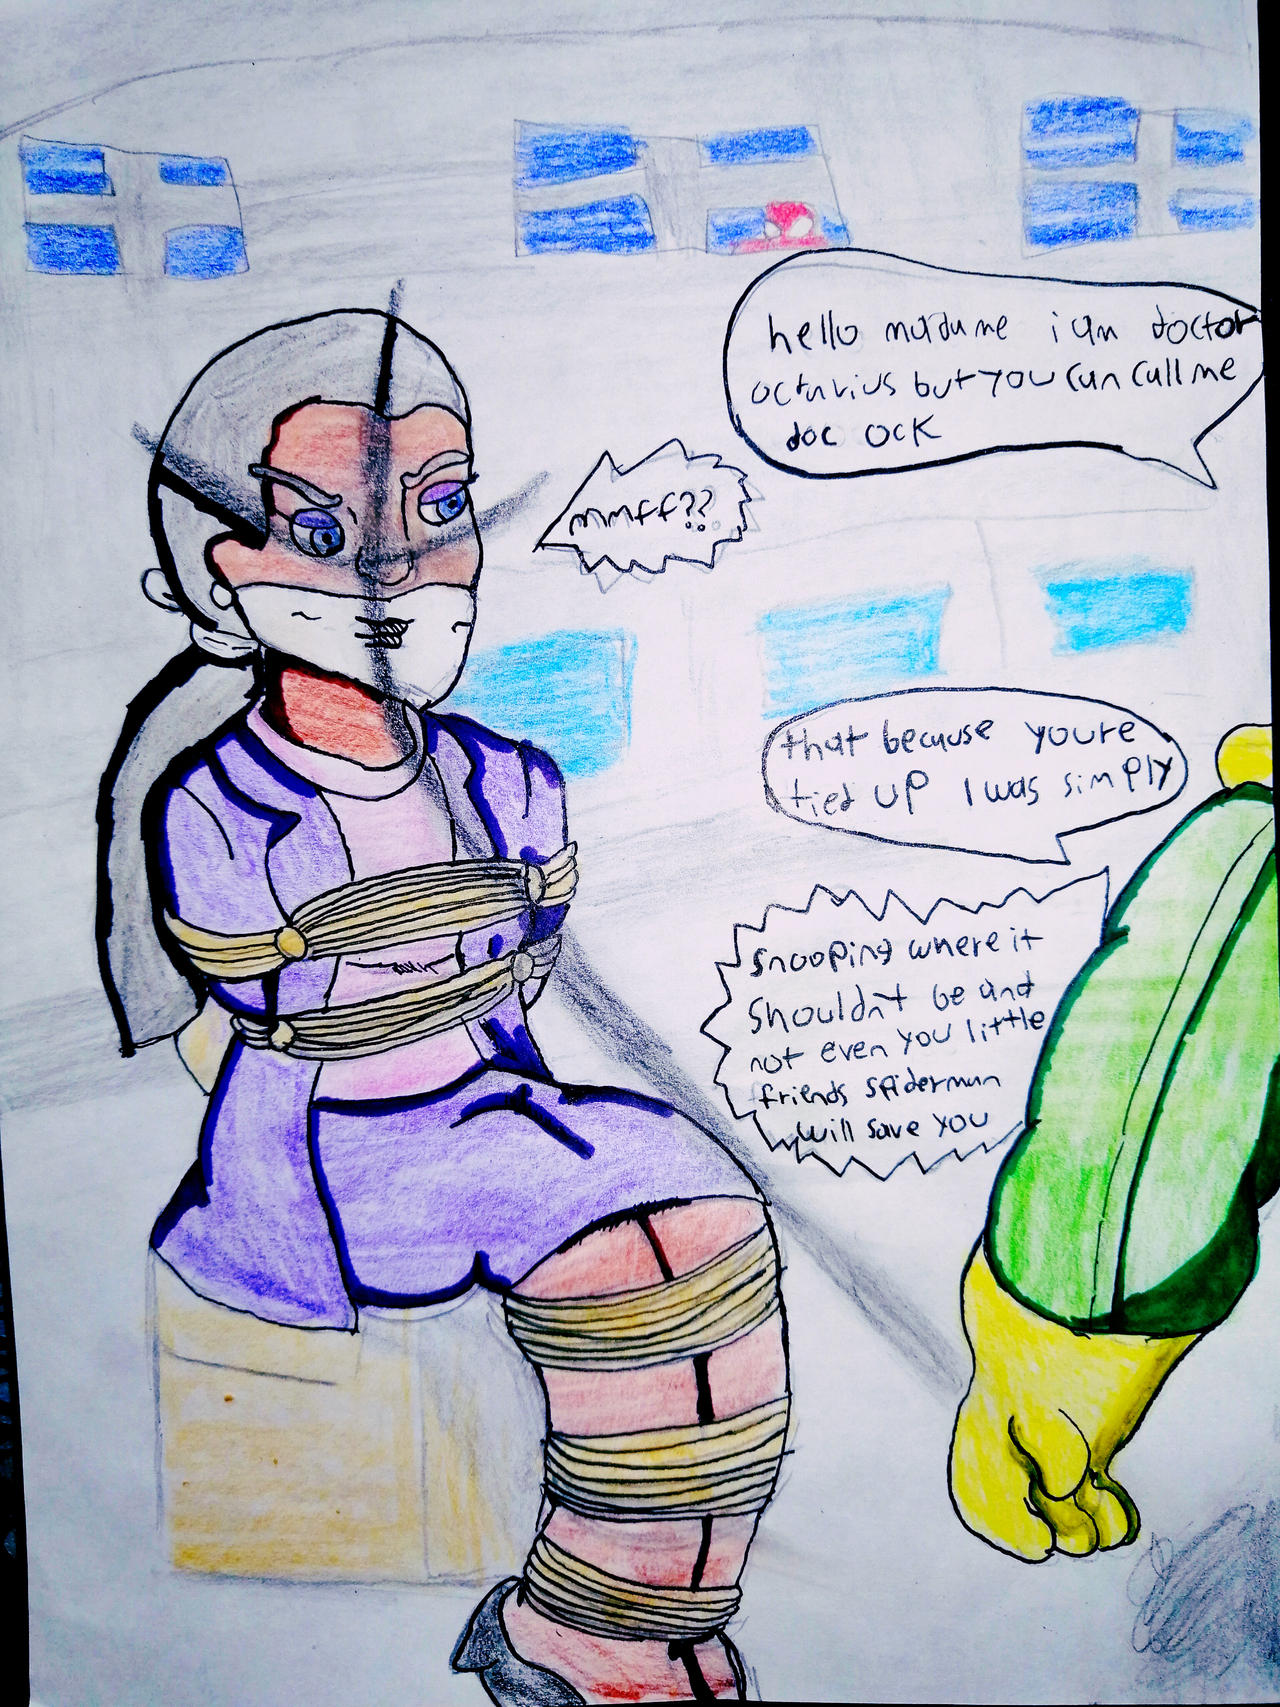 hello madame i am doctor
octavius but you can call me
doc ock
mmff??
that because youre
tied up I was simply
snooping where it
shouldn't be and
not even you little
friends spiderman
will save you